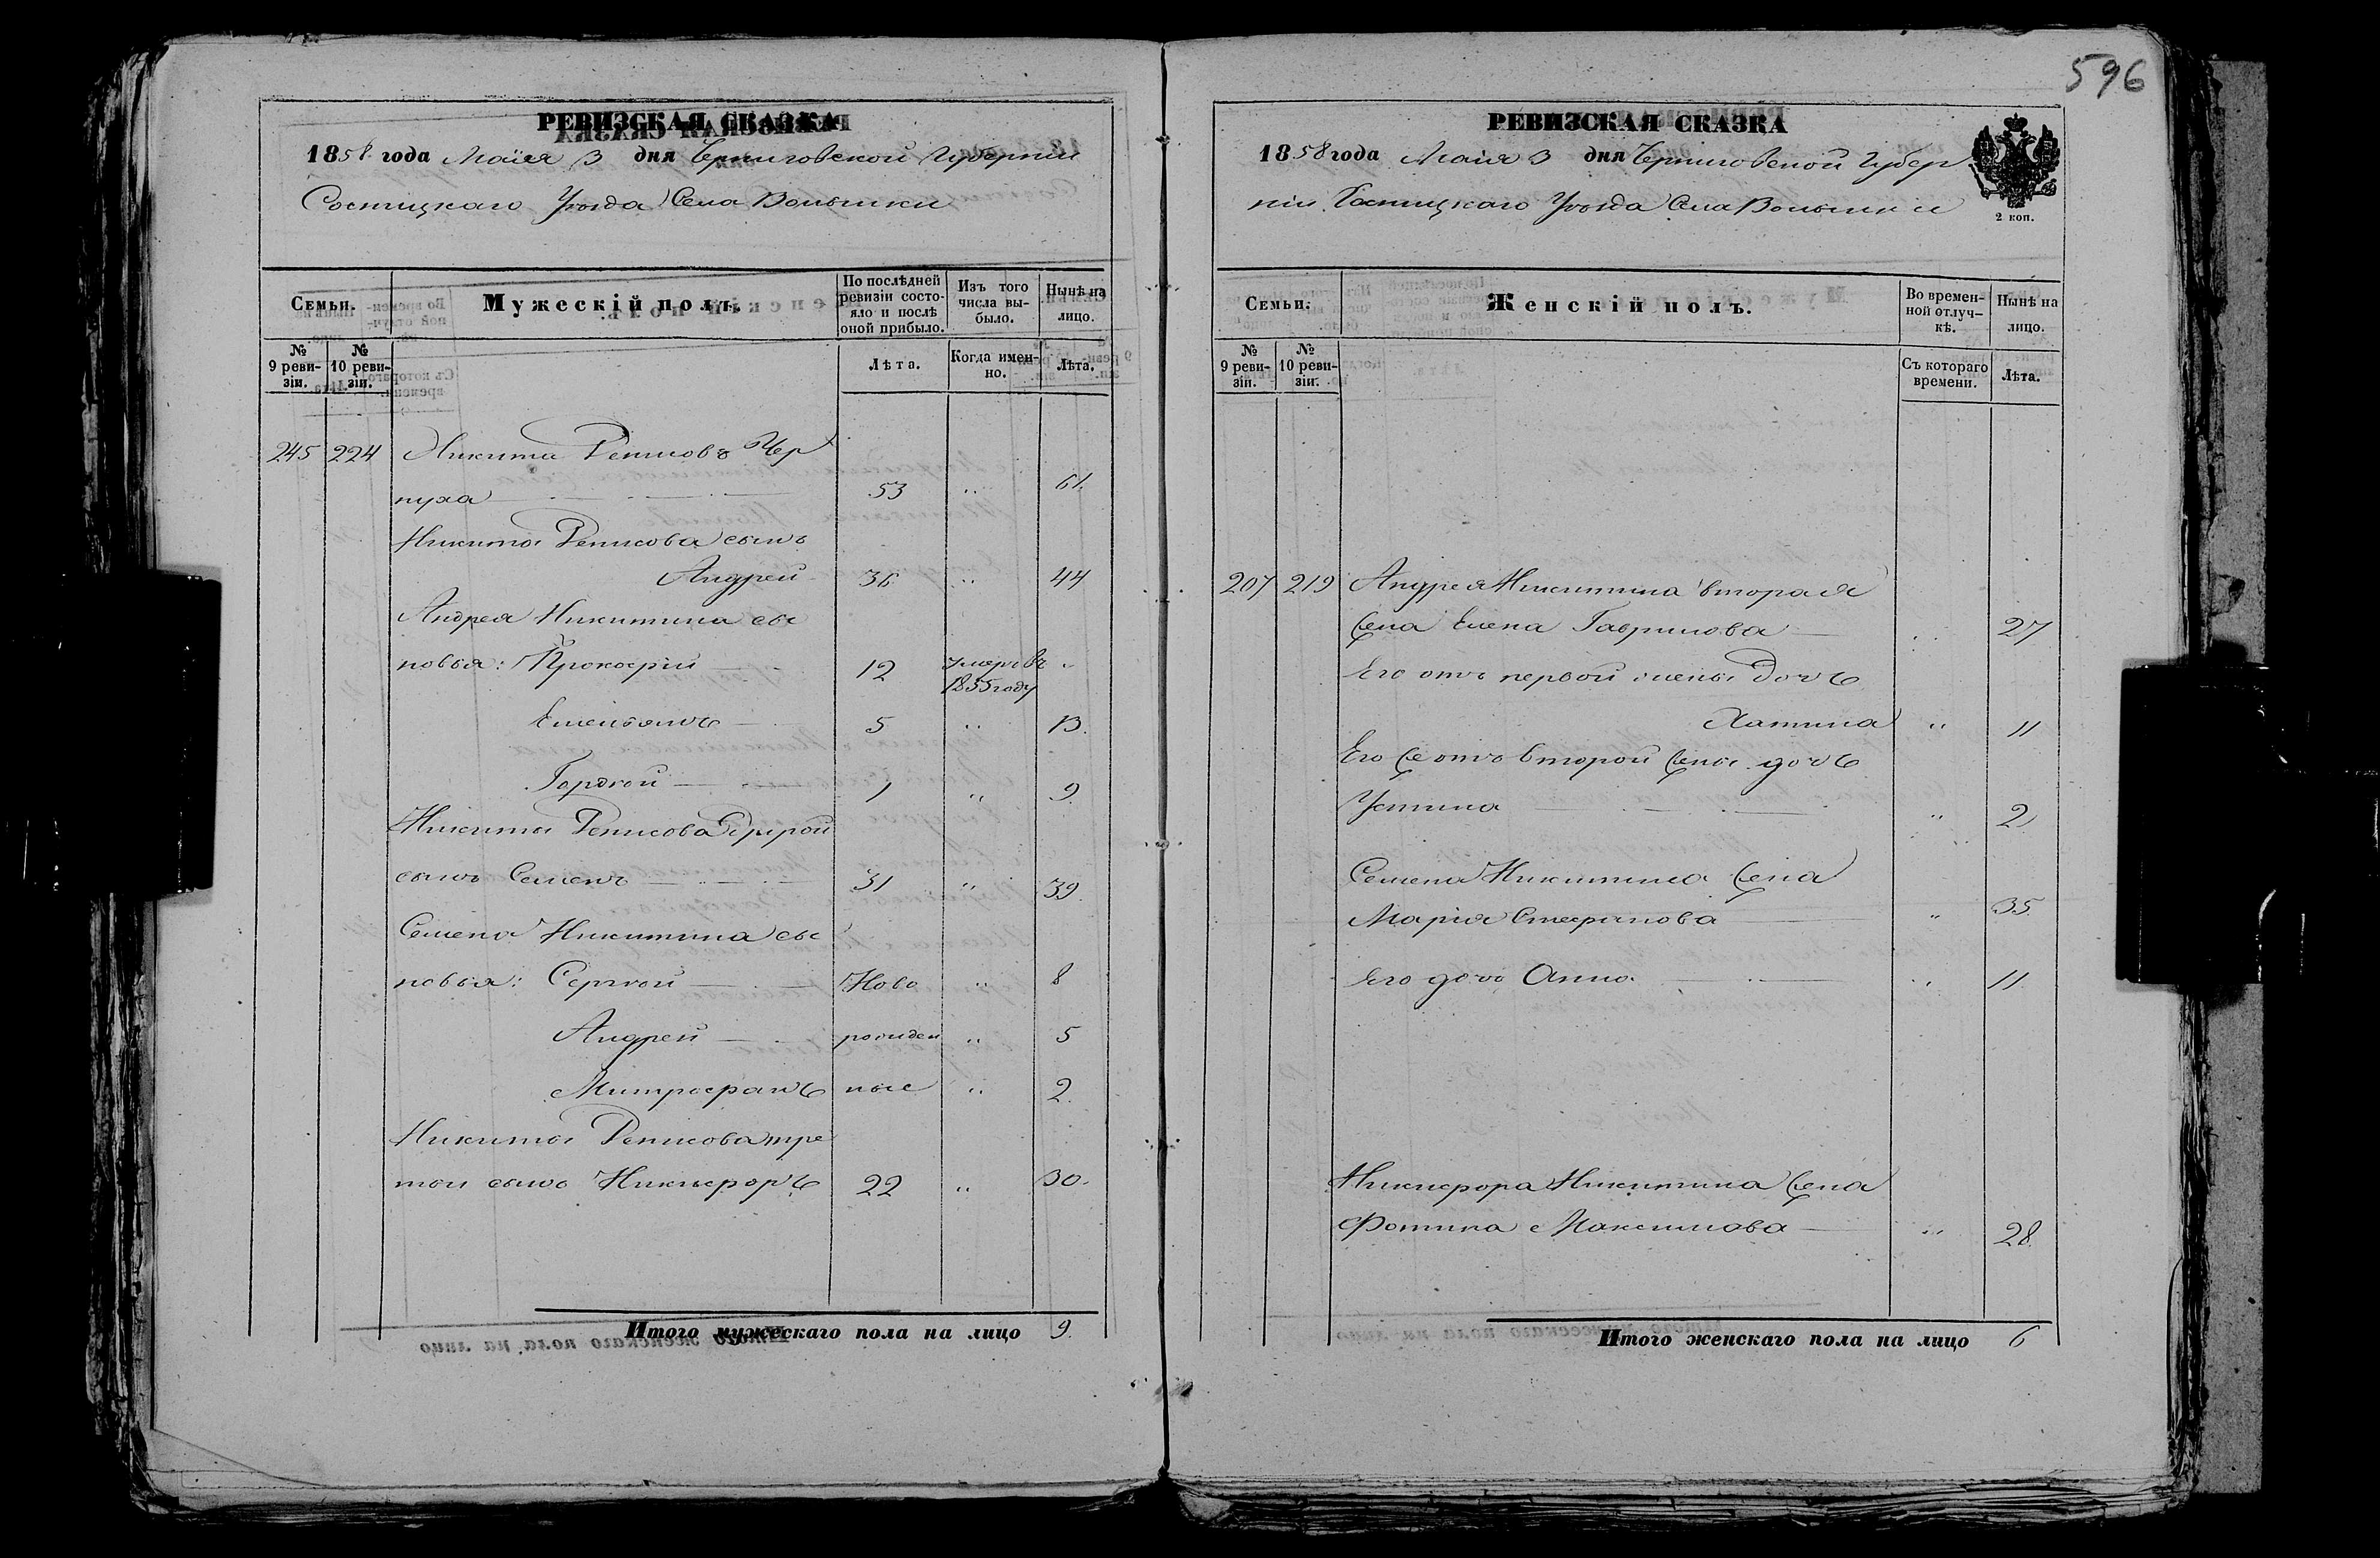 596
РЕВИЗСКАЯ СКАЗКА
1858 года Маія 3 дня Черниговской Губерніи
Сосницкаго Уѣзда Села Волынки
Семьи.
Мужескій полъ.
По послѣдней ревизіи состояло и послѣ оной прибыло.
Изъ того числа выбыло.
Нынѣ на лицо.
№ 9 ревизіи.
№ 10 ревизіи.
Лѣта.
Когда именно.
Лѣта.
245 224 Никита Денисовъ Чер
нуха 53 " 61.
Никиты Денисова сынъ
Андрей 36 " 44
Андрея Никитина сы
новья: Прокофій 12 умеръ въ 1855 году "
Емельянъ 5 " 13.
Гордѣй 1 " 9.
Никиты Денисова другой
сынъ Семенъ 31 " 39.
Семена Никитина сы
новья: Сергѣй Ново " 8
Андрей рожден " 5
Митрофанъ ные " 2.
Никиты Денисова тре
тій сынъ Никифоръ 22 " 30.
Итого мужескаго пола на лицо 9.
РЕВИЗСКАЯ СКАЗКА
1858 года Маія 3 дня Черниговской Губер
ніи Сосницкаго Уѣзда Села Волынки
2 коп.
Семьи.
Женскій полъ.
Во временной отлучкѣ.
Нынѣ на лицо.
№ 9 ревизіи.
№ 10 ревизіи.
Съ котораго времени.
Лѣта.
207 219 Андрея Никитина вторая
жена Елена Гаврилова " 27
Его отъ первой жены дочь
" 11
Его же отъ второй жены дочь
Устина " 2
Семена Никитина жена
Марія Стефанова " 35.
Его дочь Анна " 11
Никифора Никитина жена
Фотина Максимова " 28.
Итого женскаго пола на лицо 6